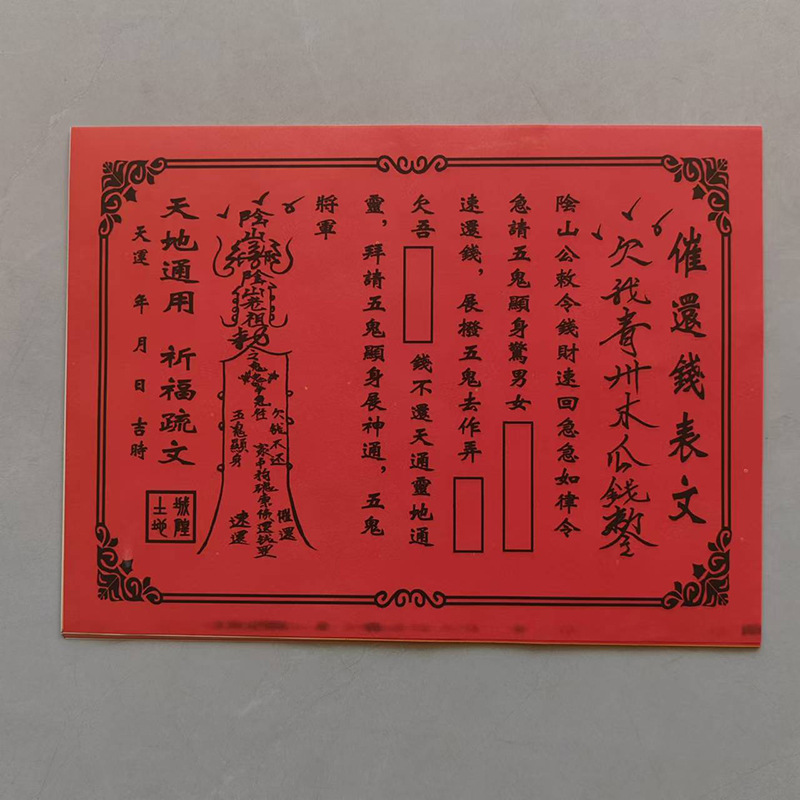 催還錢表文
欠我青卅木瓜錢整
陰山公敕令錢財速回急急如律令
急請五鬼顯身驚男女
速還錢，展撥五鬼去作弄
欠吾 錢不還天通靈地通
靈，拜請五鬼顯身展神通，五鬼
將軍
陰山 陰山老祖
欠錢不还
催還
五鬼顯身
速還
天地通用 祈福疏文
天運 年 月 日 吉時
城隍
土地